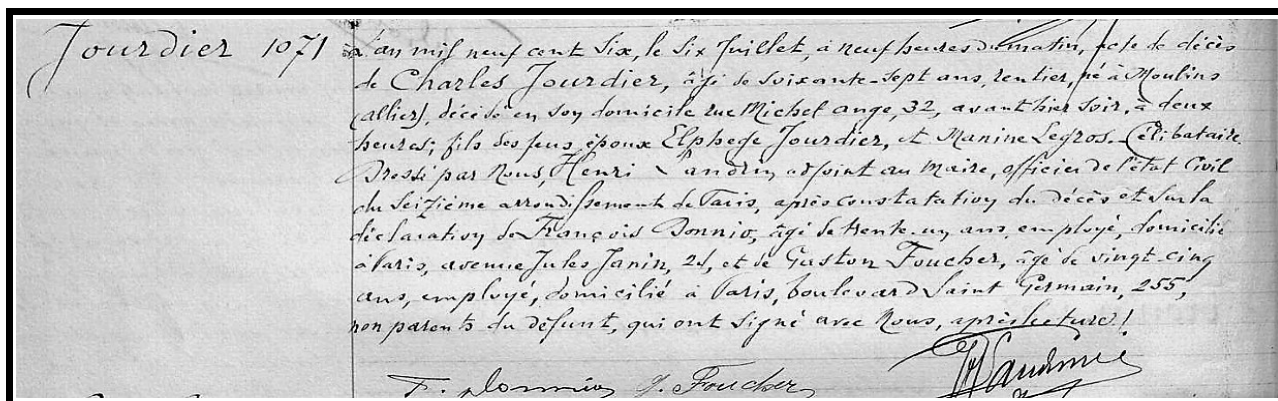 Jourdier 1071
L'an mil neuf cent six, le six Juillet, à neuf heures du matin, acte de décès
de Charles Jourdier, âgé de soixante-sept ans, rentier, né à Moulins
(allier), décédé en son domicile rue Michel ange, 32, avant hier soir, à deux
heures; fils des feus époux Elphege Jourdier, et Manine Legros. Célibataire.
Dressé par Nous, Henri Landrin, adjoint au Maire, officier de l'état Civil
du Seizième arrondissement de Paris, après constatation du décès et sur la
déclaration de François Bonnio, âgé de trente-un ans, employé, domicilié
à Paris, avenue Jules Janin, 21, et de Gaston Foucher, âgé de vingt-cinq
ans, employé, domicilié à Paris, boulevard Saint Germain, 255,
non parents du défunt, qui ont signé avec Nous, après lecture!
F. Bonnio G. Foucher